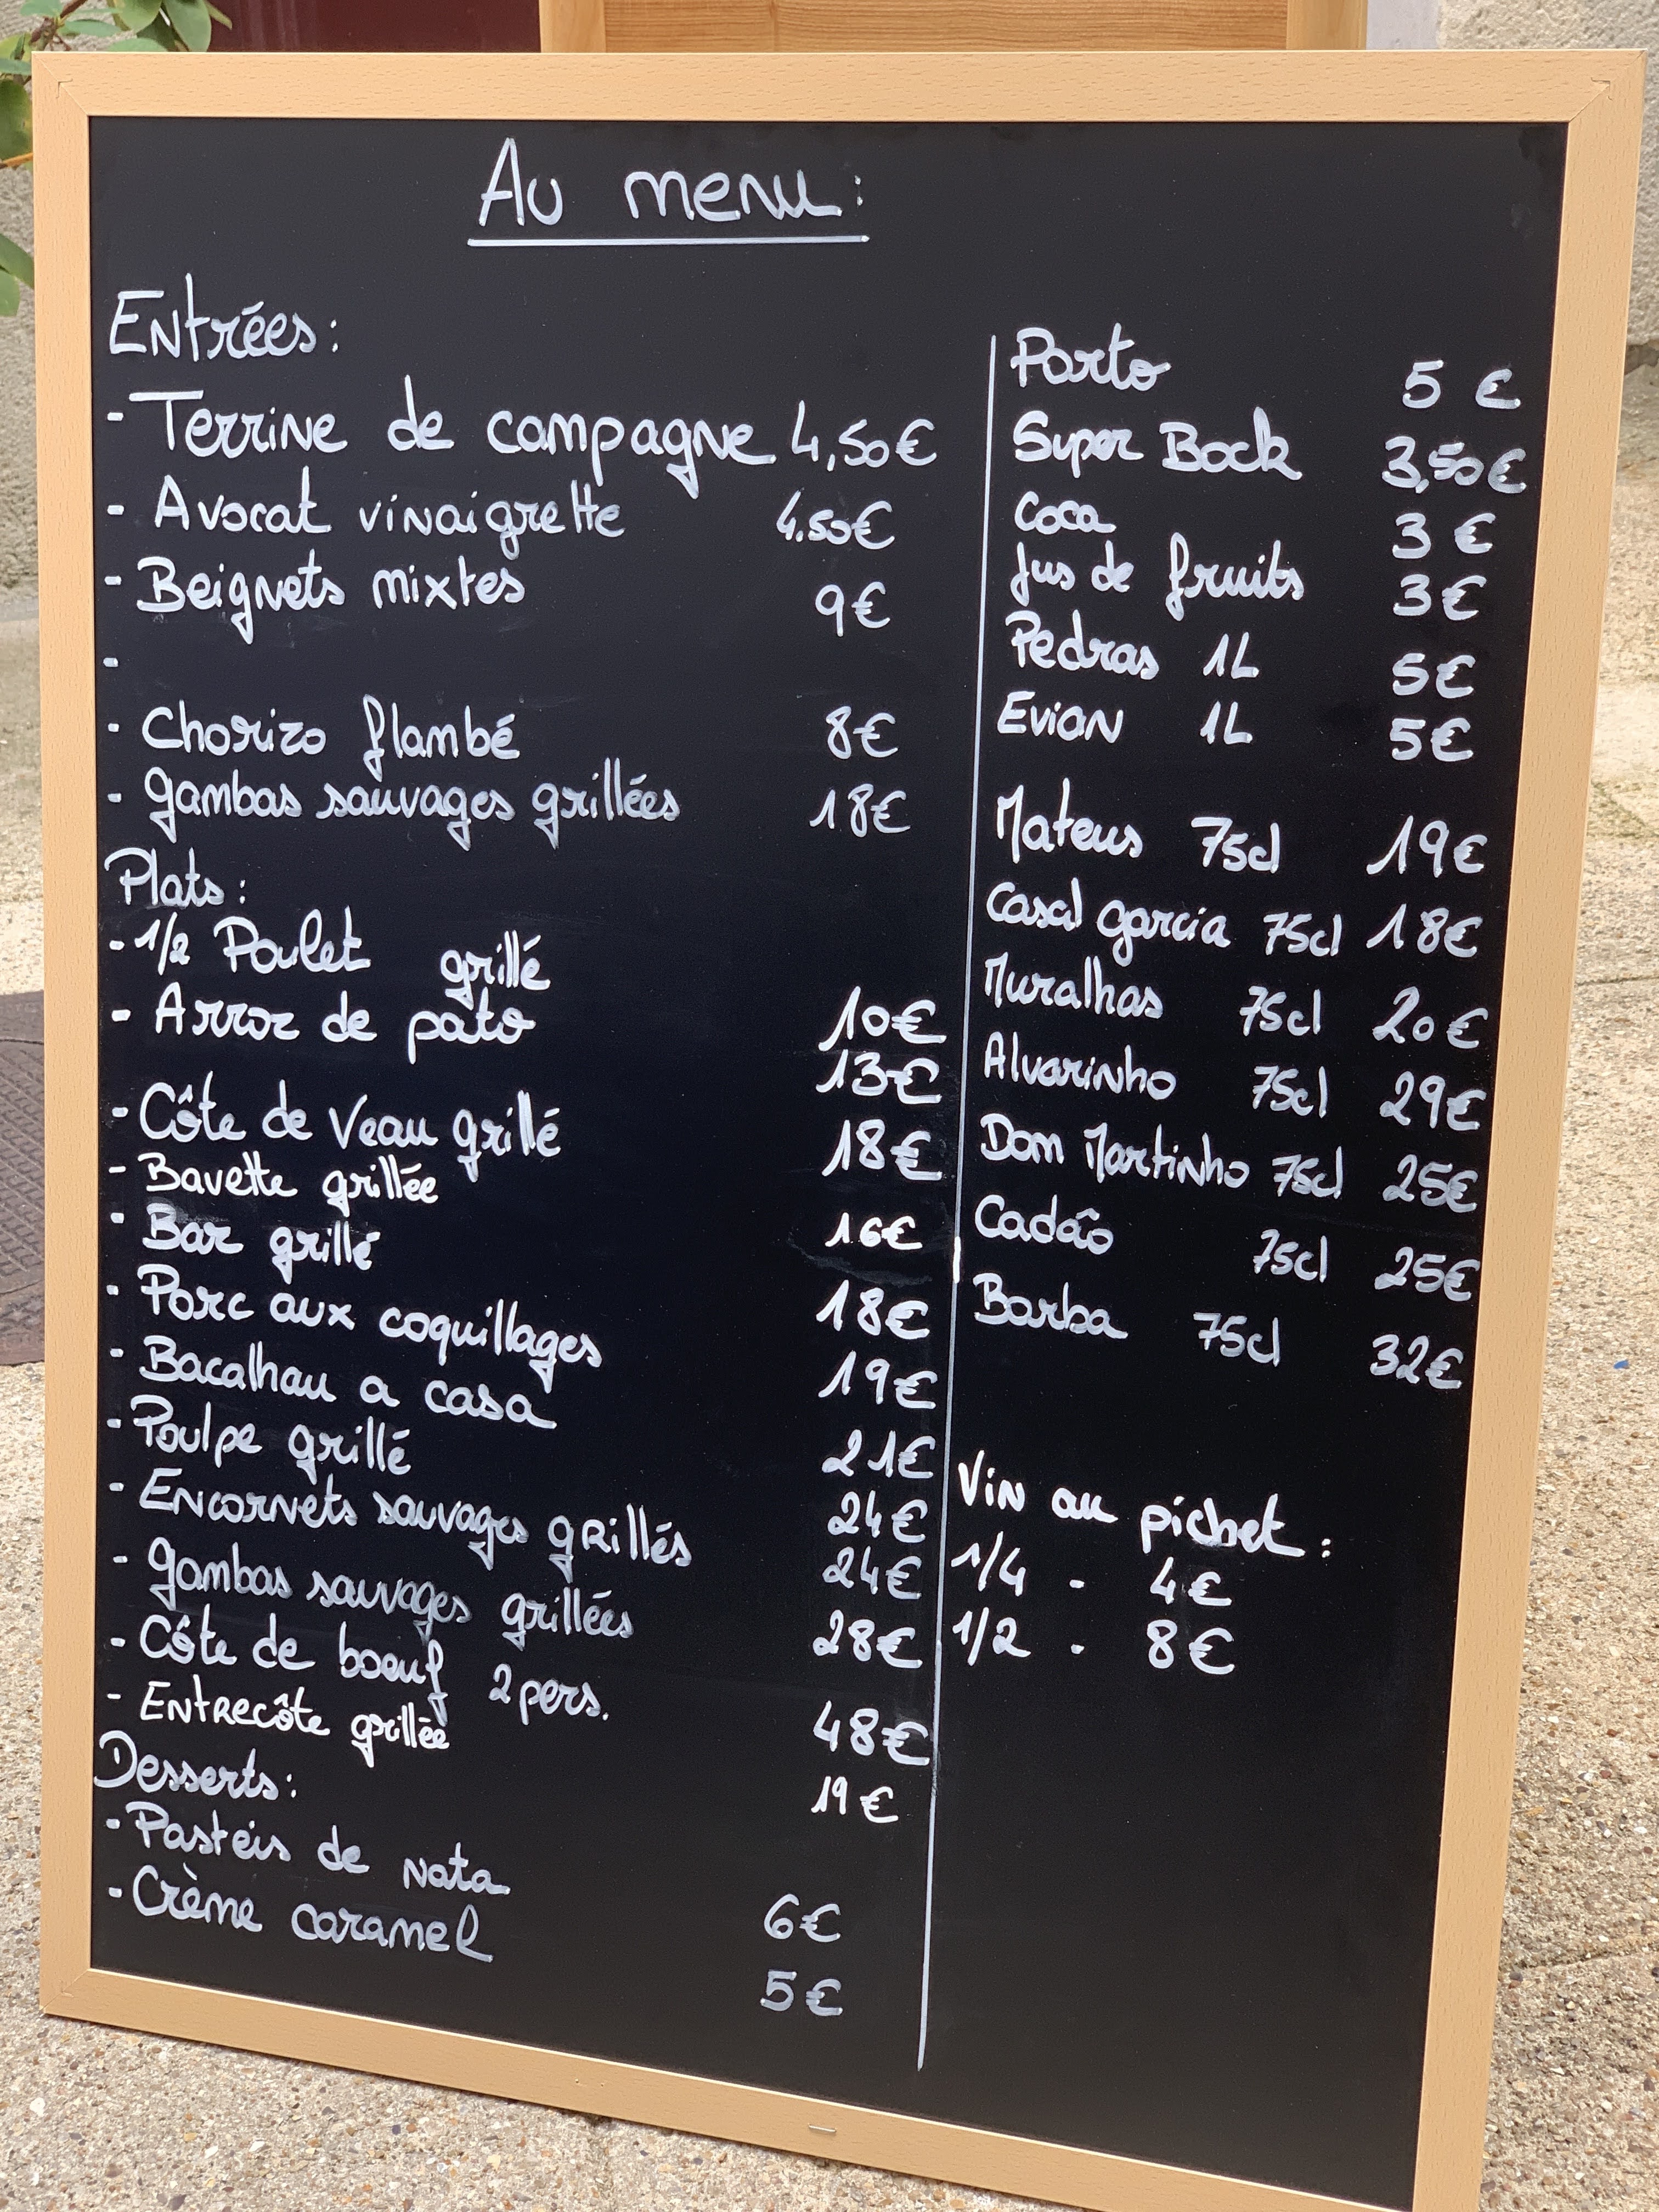 Au menu:
Entrées:
- Terrine de campagne 4,50€
- Avocat vinaigrette 4.50€
- Beignets mixtes 9€
-
- Chorizo flambé 8€
- gambas sauvages grillées 18€
Plats:
- 1/2 Poulet grillé 10€
- Arroz de pato 13€
- Côte de Veau grillé 18€
- Bavette grillée 16€
- Bar grillé 18€
- Porc aux coquillages 19€
- Bacalhau a casa 21€
- Poulpe grillé 24€
- Encornets sauvages grillés 24€
- gambas sauvages grillées 28€
- Côte de boeuf 2 pers. 48€
- Entrecôte grillée 19€
Desserts:
- Pasteis de nata 6€
- Crème caramel 5€
Porto 5 €
Super Bock 3,50€
Coca 3 €
Jus de fruits 3€
Pedras 1L 5€
Evian 1L 5€
Mateus 75cl 19€
Casal garcia 75cl 18€
Muralhas 75cl 20€
Alvarinho 75cl 29€
Dom Martinho 75cl 25€
Cadão 75cl 25€
Barba 75cl 32€
Vin au pichet:
1/4 - 4€
1/2 - 8€